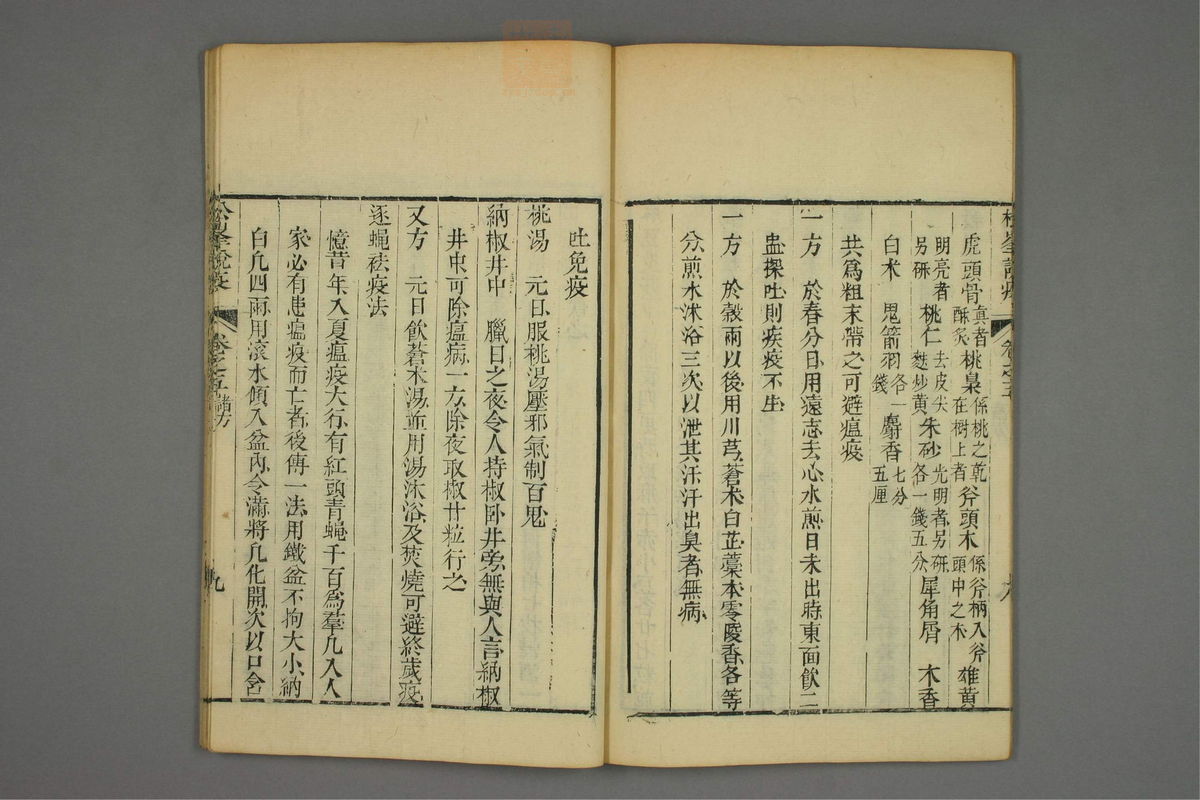 虎頭骨真者酥炙桃梟係桃之乾在樹上者斧頭木係斧柄入斧頭中之木雄黃
明亮者另研桃仁去皮尖麩炒黃朱砂光明者另研各一錢五分犀角屑木香
白术鬼箭羽各一錢麝香七分五厘
共爲粗末帶之可避瘟疫
一方於春分日用遠志去心水煎日未出時東面飲二
盅探吐則疾疫不生
一方於穀兩以後用川芎蒼术白芷藁本零陵香各等
分煎水沐浴三次以泄其汗汗出臭者無病
吐免疫
桃湯元日服桃湯壓邪氣制百鬼
納椒井中臘日之夜令人持椒卧井旁無與人言納椒
井中可除瘟病一方除夜取椒廿粒行之
又方元日飲蒼术湯並用湯沐浴及焚燒可避終歲疫
逐蝿祛疫法
憶昔年入夏瘟疫大行有紅頭青蝿千百爲羣凡入人
家必有患瘟疫而亡者後傳一法用鐵盆不拘大小納
白凡四兩用滚水傾入盆內令滿將凡化開次以口含
松峯說疫卷之五諸方九